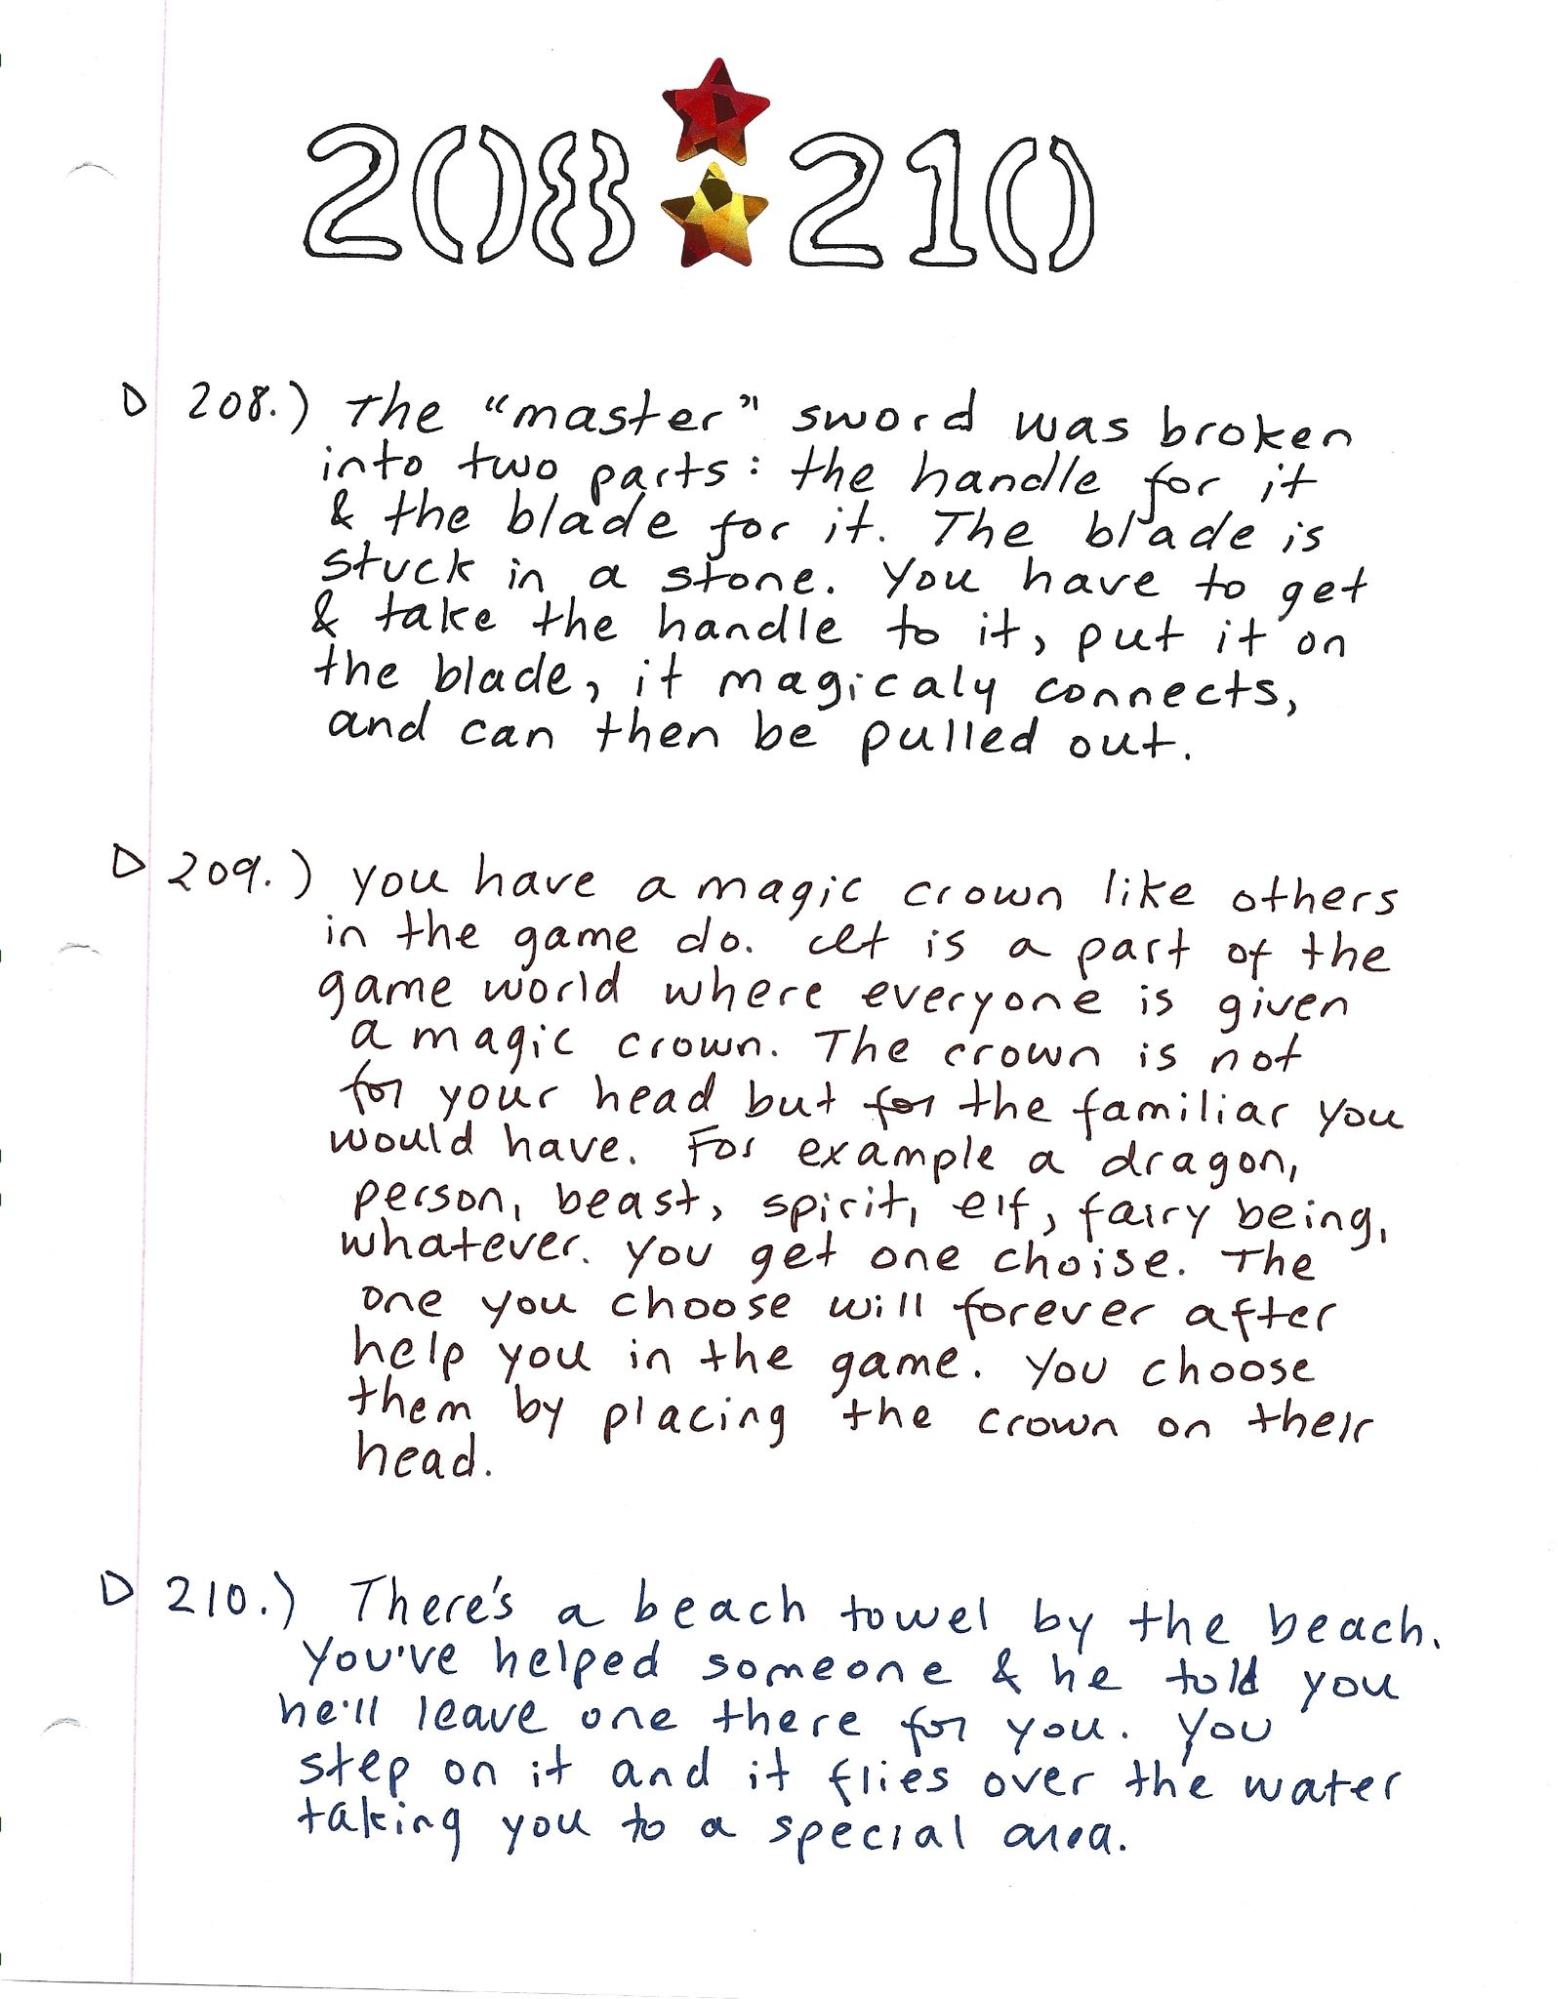 208 210
208.) The "master" sword was broken
into two parts: the handle for it
& the blade for it. The blade is
stuck in a stone. You have to get
& take the handle to it, put it on
the blade, it magicaly connects,
and can then be pulled out.
209.) You have a magic crown like others
in the game do. It is a part of the
game world where everyone is given
a magic crown. The crown is not
for your head but for the familiar you
would have. For example a dragon,
person, beast, spirit, elf, fairy being,
whatever. You get one choise. The
one you choose will forever after
help you in the game. You choose
them by placing the crown on their
head.
210.) There's a beach towel by the beach.
You've helped someone & he told you
he'll leave one there for you. You
step on it and it flies over the water
taking you to a special area.